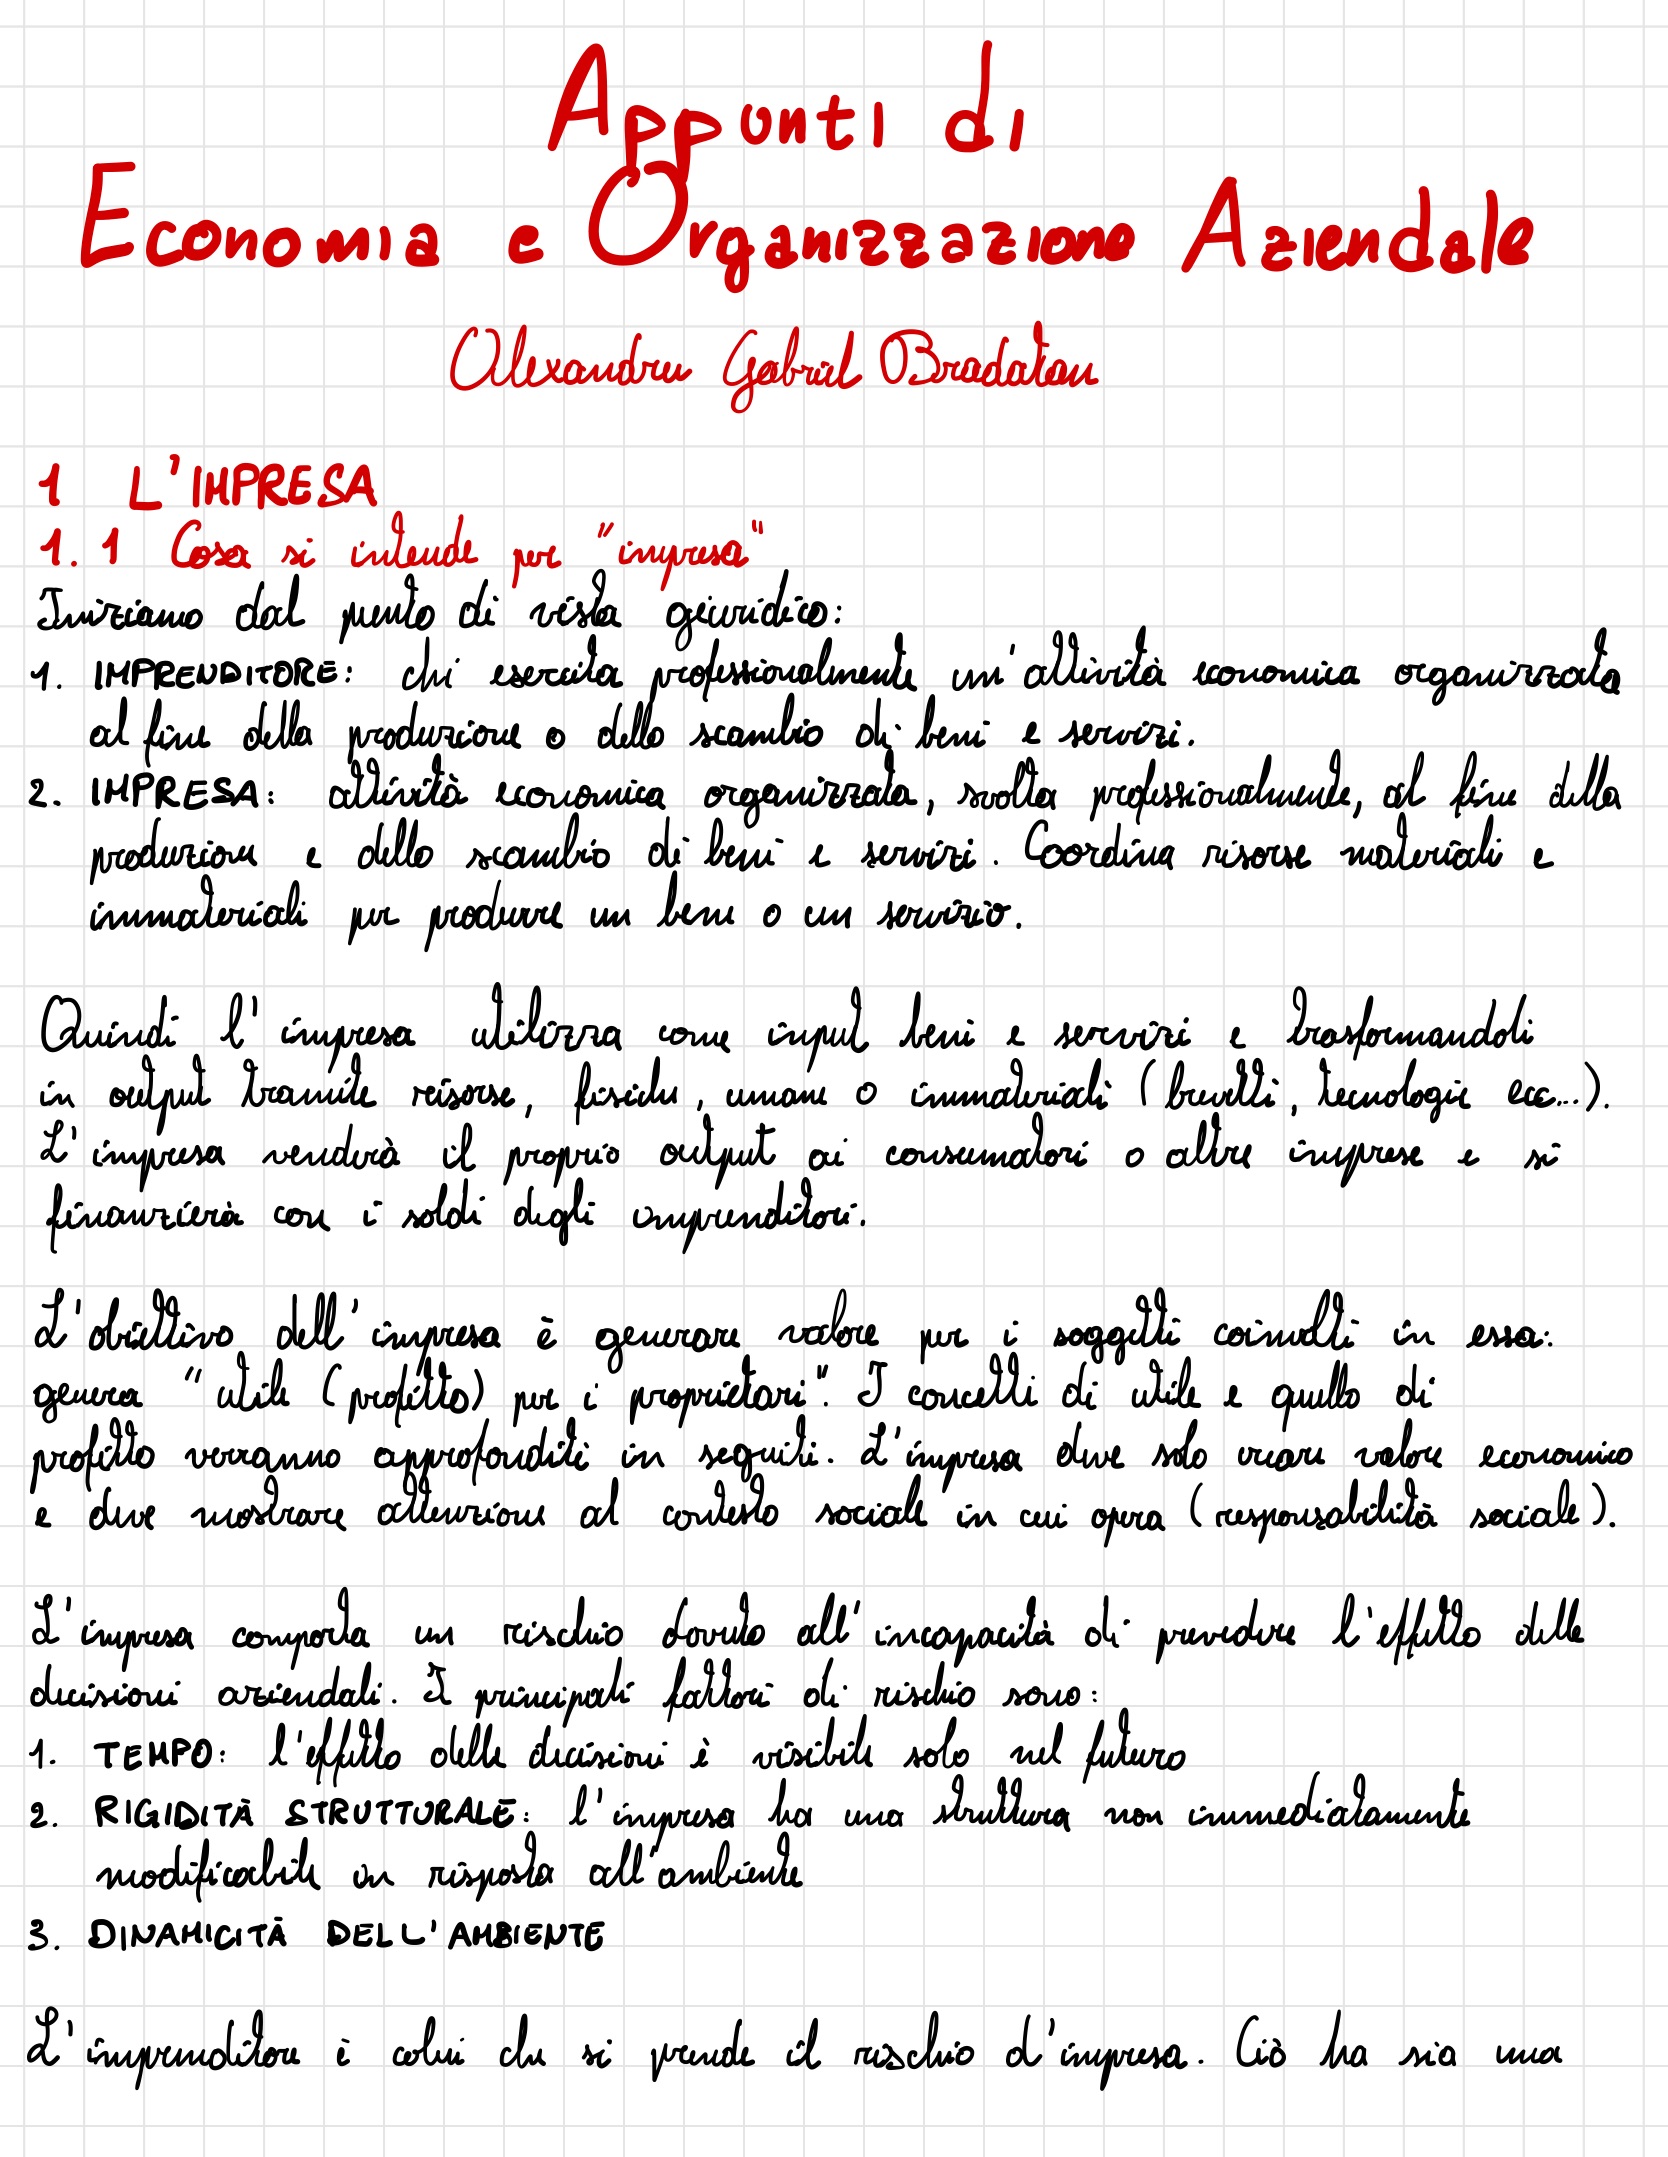 Appunti di
Economia e Organizzazione Aziendale
Alexandru Gabriel Bradatan
1 L'IMPRESA
1.1 Cosa si intende per "impresa"
Iniziamo dal punto di vista giuridico:
1. IMPRENDITORE: chi esercita professionalmente un'attività economica organizzata
al fine della produzione o dello scambio di beni e servizi.
2. IMPRESA: attività economica organizzata, svolta professionalmente, al fine della
produzione e dello scambio di beni e servizi. Coordina risorse materiali e
immateriali per produrre un bene o un servizio.
Quindi l'impresa utilizza come input beni e servizi e trasformandoli
in output tramite risorse, fisiche, umane o immateriali (brevetti, tecnologie ecc...).
L'impresa venderà il proprio output ai consumatori o altre imprese e si
finanzierà con i soldi degli imprenditori.
L'obiettivo dell'impresa è generare valore per i soggetti coinvolti in essa:
genera "utile (profitto) per i proprietari". I concetti di utile e quello di
profitto verranno approfonditi in seguiti. L'impresa deve solo creare valore economico
e deve mostrare attenzione al contesto sociale in cui opera (responsabilità sociale).
L'impresa comporta un rischio dovuto all'incapacità di prevedere l'effetto delle
decisioni aziendali. I principali fattori di rischio sono:
1. TEMPO: l'effetto delle decisioni è visibile solo nel futuro
2. RIGIDITÀ STRUTTURALE: l'impresa ha una struttura non immediatamente
modificabile in risposta all'ambiente
3. DINAMICITÀ DELL'AMBIENTE
L'imprenditore è colui che si prende il rischio d'impresa. Ciò ha sia una